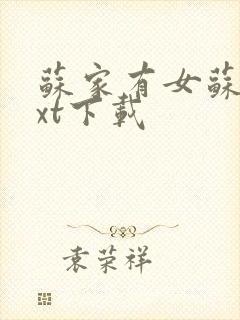 蘇家有女蘇
xt下載
袁荣祥